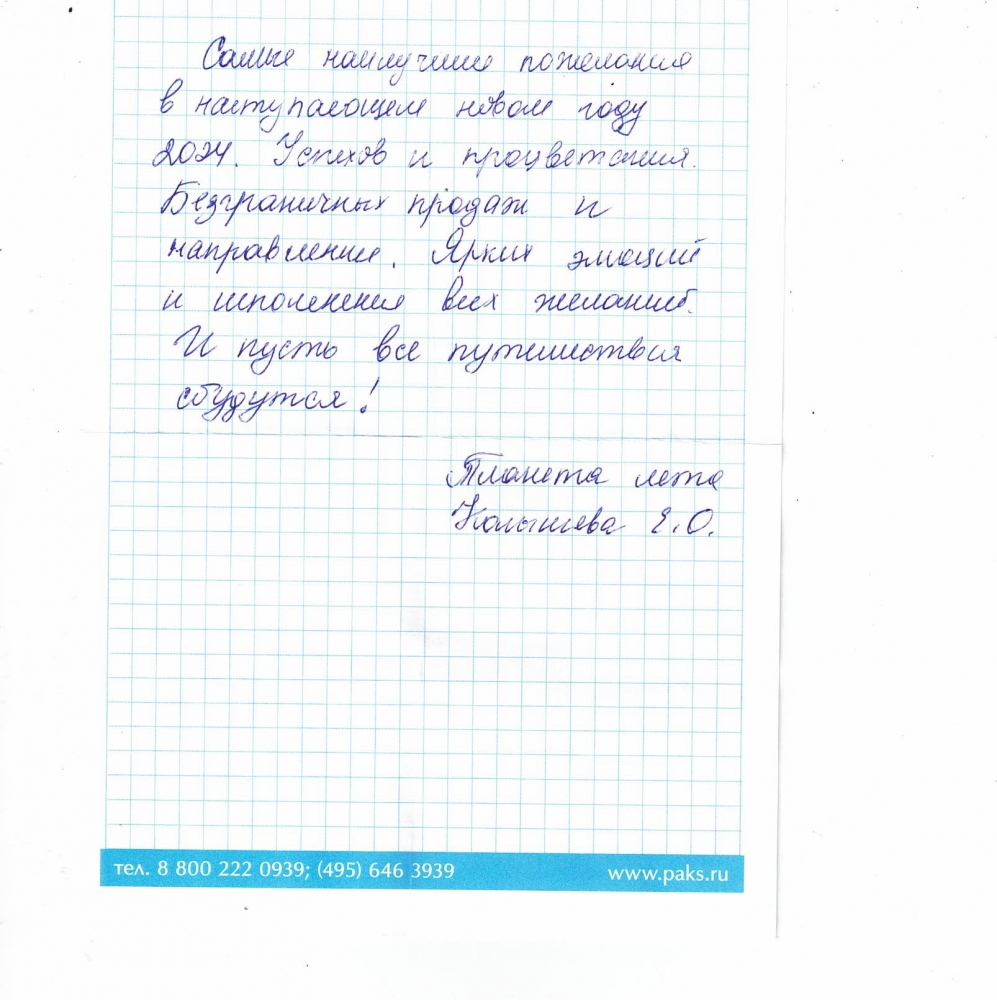 Самые наилучшие пожелания
в наступающем новом году
2024. Успехов и процветания.
Безграничных продаж и
направлении. Ярких эмоций
и исполнения всех желаний.
И пусть все путешествия
сбудутся!
Планета лета
Е.О.
тел. 8 800 222 0939; (495) 646 3939
www.paks.ru